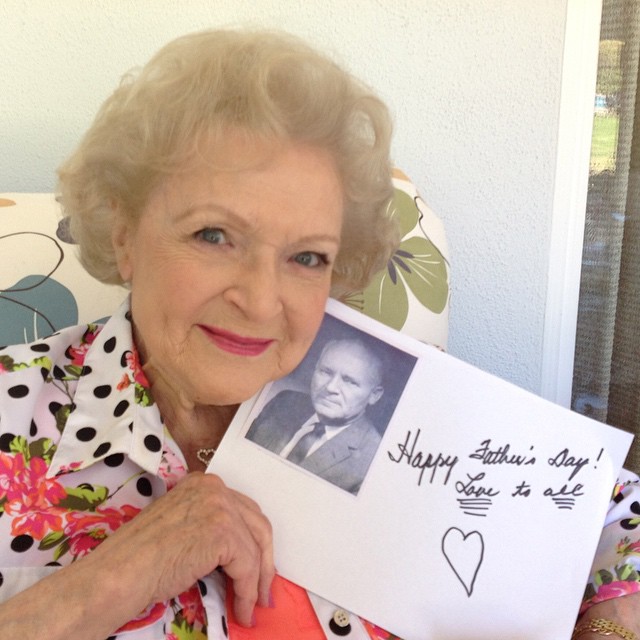 Happy Father's Day!
Love to all